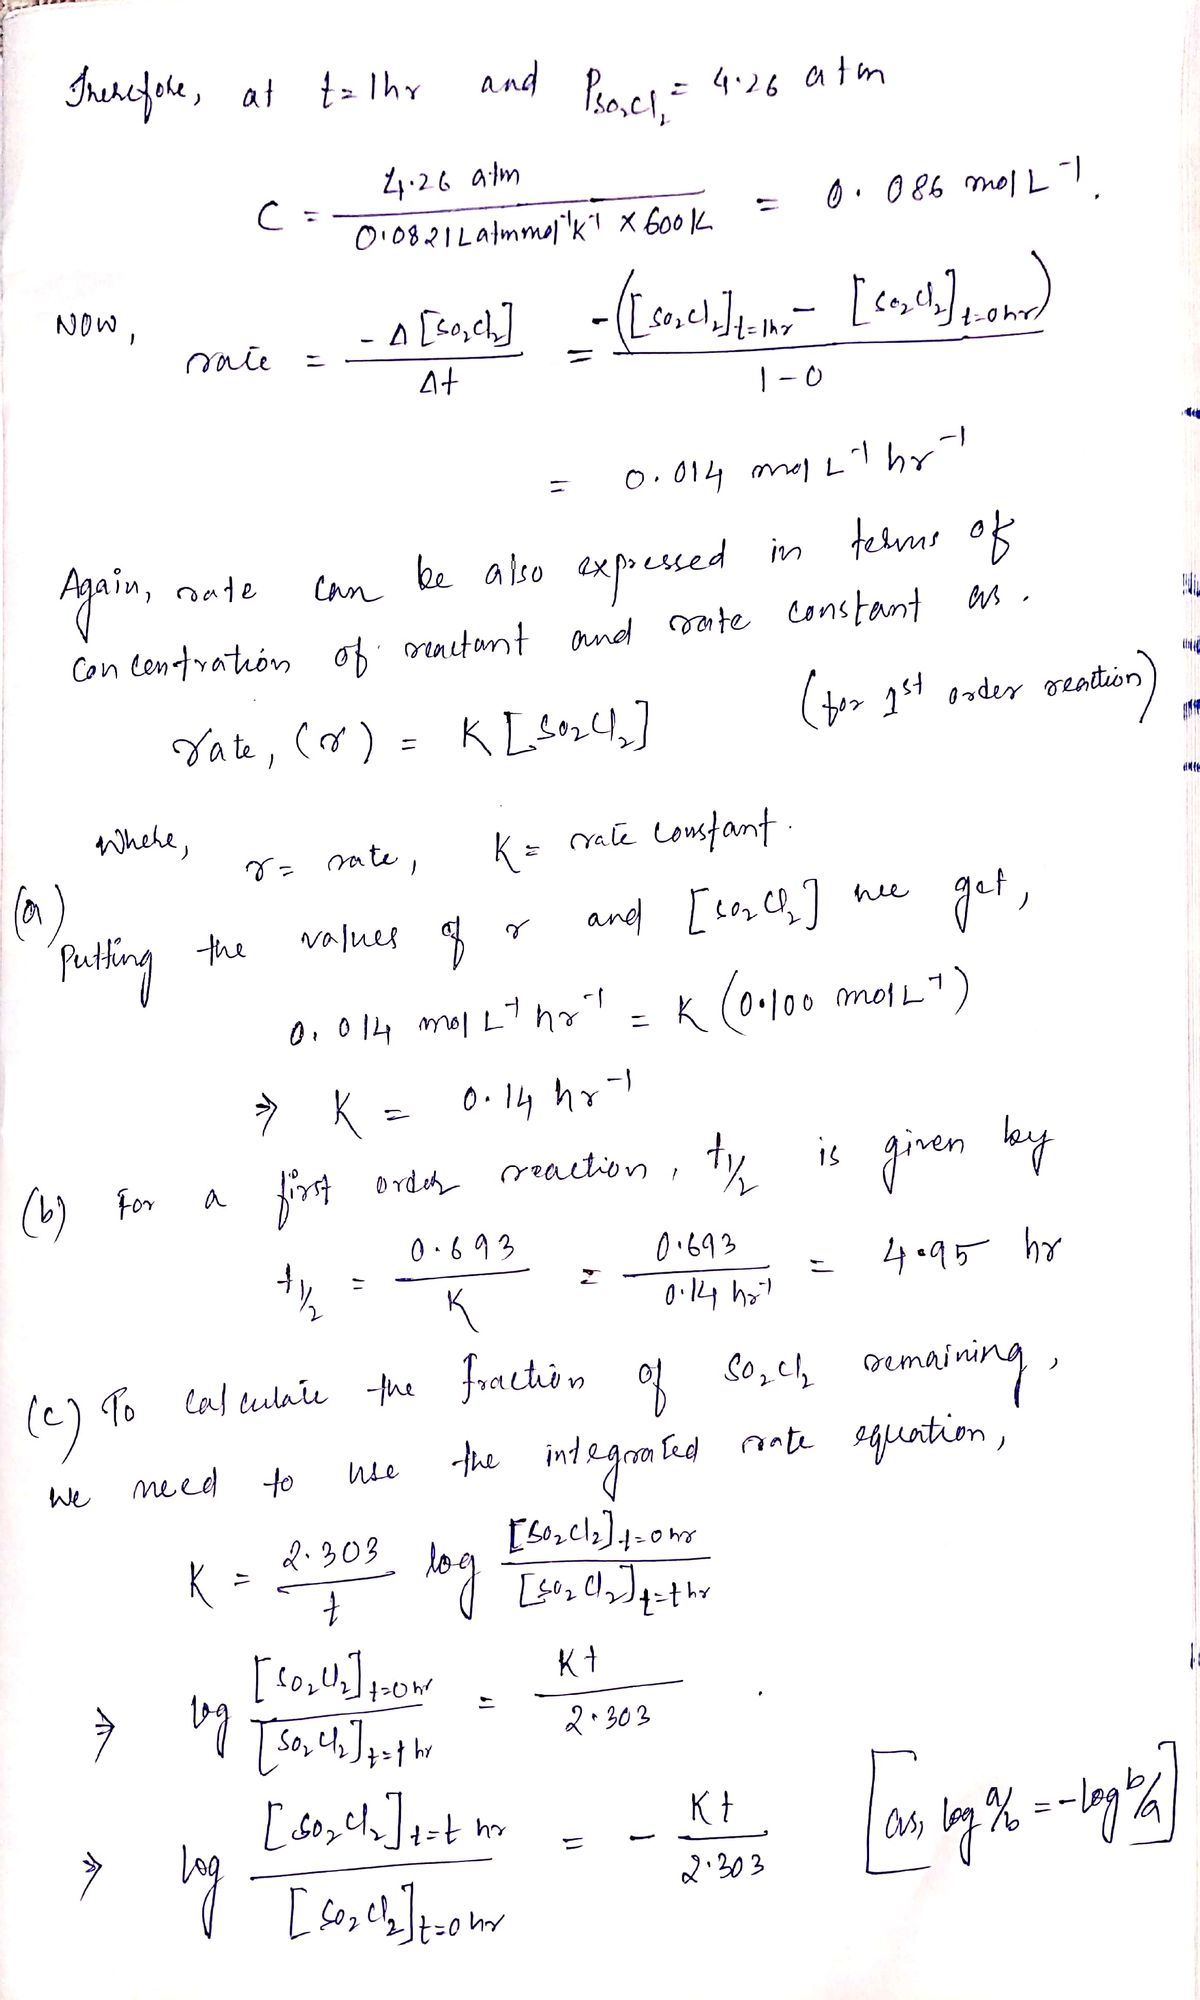 Therefore, at t=1hr and P_SO₂Cl₂ = 4.26 atm
C = 4.26 atm / 0.0821 L atm mol⁻¹ K⁻¹ × 600 K = 0.086 mol L⁻¹.
Now, rate = -Δ[SO₂Cl₂] / Δt = -([SO₂Cl₂]t=1hr - [SO₂Cl₂]t=0hr) / 1-0
= 0.014 mol L⁻¹ hr⁻¹
Again, rate can be also expressed in terms of
concentration of reactant and rate constant as.
rate, (r) = K [SO₂Cl₂] (for 1st order reaction)
Where, r = rate, K = rate constant.
(a) Putting the values of r and [SO₂Cl₂] we get,
0.014 mol L⁻¹ hr⁻¹ = K (0.100 mol L⁻¹)
⇒ K = 0.14 hr⁻¹
(b) For a first order reaction, t½ is given by
t½ = 0.693 / K = 0.693 / 0.14 hr⁻¹ = 4.95 hr
(c) To calculate the fraction of SO₂Cl₂ remaining,
we need to use the integrated rate equation,
K = 2.303 / t log [SO₂Cl₂]t=0hr / [SO₂Cl₂]t=t hr
⇒ log [SO₂Cl₂]t=0hr / [SO₂Cl₂]t=t hr = Kt / 2.303 .
⇒ log [SO₂Cl₂]t=t hr / [SO₂Cl₂]t=0hr = - Kt / 2.303 [as, log a/b = -log b/a]